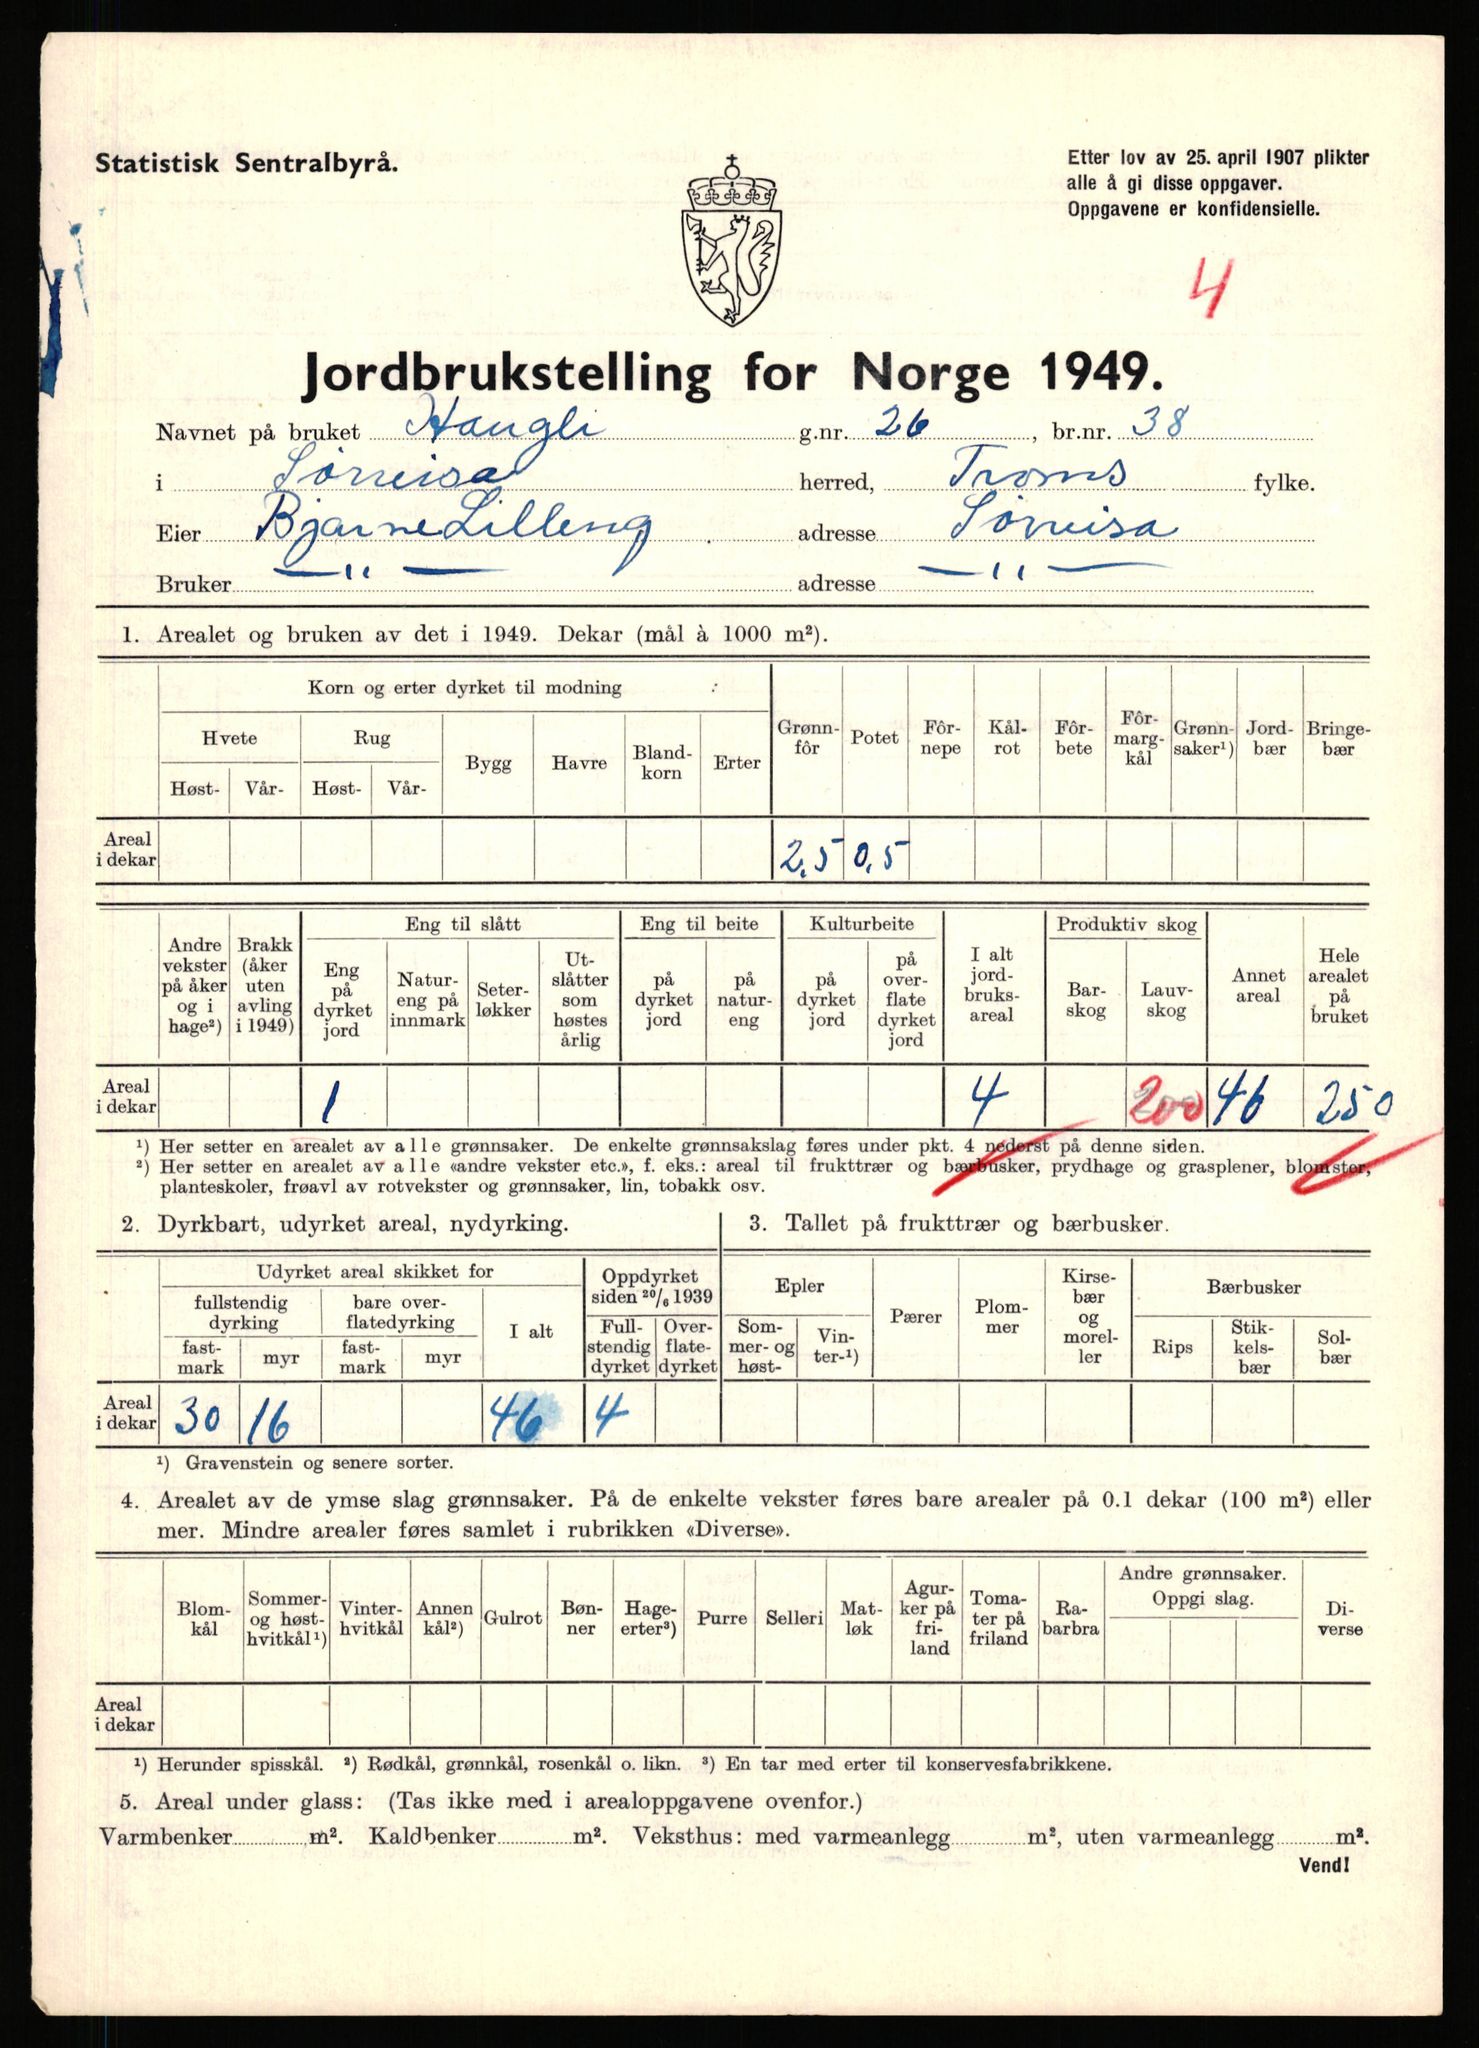 Statistisk Sentralbyrå.
Etter lov av 25. april 1907 plikter
alle å gi disse oppgaver.
Oppgavene er konfidensielle.
4
Jordbrukstelling for Norge 1949.
Navnet på bruket Haugli g.nr. 26, br.nr. 38
i Sørreisa herred, Troms fylke.
Eier Bjarne Lilleng adresse Sørreisa
Bruker —"— adresse —"—
1. Arealet og bruken av det i 1949. Dekar (mål à 1000 m²).
Korn og erter dyrket til modning
Hvete Rug
Høst- Vår- Høst- Vår- Bygg Havre Bland-korn Erter Grønn-fôr Potet Fôr-nepe Kål-rot Fôr-bete Fôr-marg-kål Grønn-saker¹) Jord-bær Bringe-bær
Areal i dekar 2,5 0,5
Eng til slått Eng til beite Kulturbeite Produktiv skog
Andre vekster på åker og i hage²) Brakk (åker uten avling i 1949) Eng på dyrket jord Natur-eng på innmark Seter-løkker Ut-slåtter som høstes årlig på dyrket jord på natur-eng på dyrket jord på over-flate dyrket jord I alt jord-bruks-areal Bar-skog Lauv-skog Annet areal Hele arealet på bruket
Areal i dekar 1 4 200 46 250
¹) Her setter en arealet av alle grønnsaker. De enkelte grønnsakslag føres under pkt. 4 nederst på denne siden.
²) Her setter en arealet av alle «andre vekster etc.», f. eks.: areal til frukttrær og bærbusker, prydhage og grasplener, blomster,
planteskoler, frøavl av rotvekster og grønnsaker, lin, tobakk osv.
2. Dyrkbart, udyrket areal, nydyrking.
Udyrket areal skikket for
fullstendig dyrking bare over-flatedyrking I alt Oppdyrket siden 20/6 1939
fast-mark myr fast-mark myr Full-stendig dyrket Over-flate-dyrket
Areal i dekar 30 16 46 4
3. Tallet på frukttrær og bærbusker.
Epler Pærer Plom-mer Kirse-bær og morel-ler Bærbusker
Som-mer- og høst- Vin-ter-¹) Rips Stik-kels-bær Sol-bær
¹) Gravenstein og senere sorter.
4. Arealet av de ymse slag grønnsaker. På de enkelte vekster føres bare arealer på 0.1 dekar (100 m²) eller
mer. Mindre arealer føres samlet i rubrikken «Diverse».
Blom-kål Sommer- og høst-hvitkål¹) Vinter-hvitkål Annen kål²) Gulrot Bøn-ner Hage-erter³) Purre Selleri Mat-løk Agur-ker på fri-land Toma-ter på friland Ra-barbra Andre grønnsaker. Oppgi slag. Di-verse
Areal i dekar
¹) Herunder spisskål. ²) Rødkål, grønnkål, rosenkål o. likn. ³) En tar med erter til konservesfabrikkene.
5. Areal under glass: (Tas ikke med i arealoppgavene ovenfor.)
Varmbenker m². Kaldbenker m². Veksthus: med varmeanlegg m², uten varmeanlegg m².
Vend!